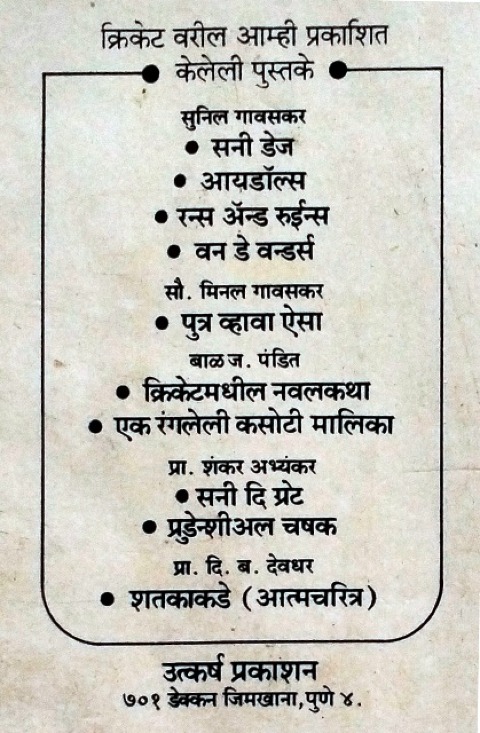 क्रिकेट वरील आम्ही प्रकाशित
केलेली पुस्तके
सुनिल गावसकर
● सनी डेज
● आयडॉल्स
● रन्स ॲन्ड रुईन्स
● वन डे वन्डर्स
सौ. मिनल गावसकर
● पुत्र व्हावा ऐसा
बाळ ज. पंडित
● क्रिकेटमधील नवलकथा
● एक रंगलेली कसोटी मालिका
प्रा. शंकर अभ्यंकर
● सनी दि ग्रेट
● प्रुडेन्शीअल चषक
प्रा. दि. ब. देवधर
● शतकाकडे (आत्मचरित्र)
उत्कर्ष प्रकाशन
७०१ डेक्कन जिमखाना, पुणे ४.